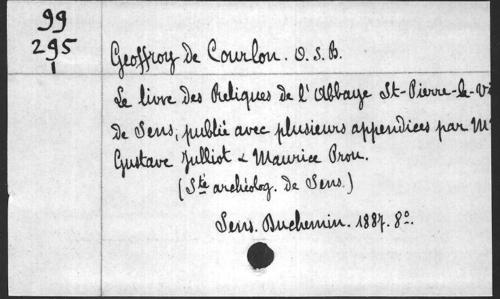 99
295
1
Geoffroy de Courlon. O. S. B.
Le livre des Reliques de l'Abbaye St-Pierre-le-Vi
de Sens, publié avec plusieurs appendices par M
Gustave Julliot & Maurice Prou.
(Sté archéolog. de Sens.)
Sens. Duchemin. 1887. 8º.